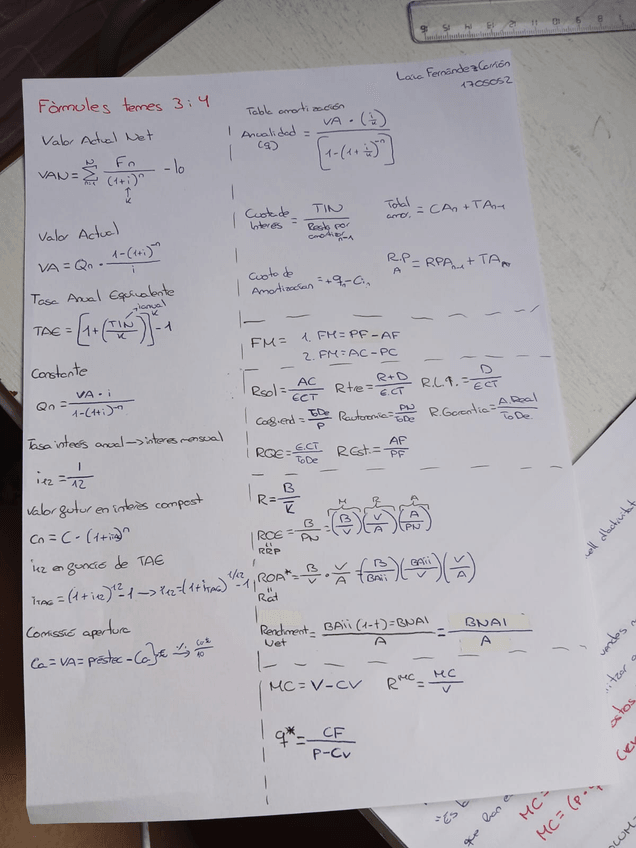 Laia Fernández Carrión
1705052
Fòrmules temes 3 i 4
Valor Actual Net
VAN = Σ n=1 N Fn / (1+i)^n - I0
↑
k
Valor Actual
VA = Qn · 1-(1+i)^-n / i
Tasa Anual Equivalente
TAE = [1 + (TIN / K)]^K - 1
i anual
Constante
Qn = VA · i / 1-(1+i)^-n
Tasa interés anual → interes mensual
i12 = 1 / 12
Valor futur en interès compost
Cn = C · (1+i)^n
i12 en funció de TAE
iTAE = (1+i12)^12 - 1 → i12 = (1+iTAE)^1/12 - 1
Comissió apertura
Ca = VA = préstec - Ca
Tabla amortización
Anualidad (q) = VA · (i/k) / [1-(1+i/k)^-n]
Cuota de Interés = TIN / Resto por amortizar n-1
Total amor. = CAn + TAn-1
Cuota de Amortización = + qn - Cin
R.P A = RPAn-1 + TA
FM = 1. FM = PF - AF
2. FM = AC - PC
Rsol = AC / ECT Rtre = R+D / E.CT R.L.I. = D / ECT
Coef.end = ToDe / P Rautonomia = PN / ToDe R.Garantia = A.Real / ToDe
RQE = E.CT / ToDe R.Est = AF / PF
R = B / K
M R A
ROE = B / PN = (B / V) (V / A) (A / PN)
RRP
ROA* = B / V · V / A = (B / BAii) (BAii / V) (V / A)
Rat
Rendiment Net = BAii (1-t) = BNAI / A = BNAI / A
MC = V - CV R^MC = MC / V
q* = CF / P - Cv
MC =
MC = (p